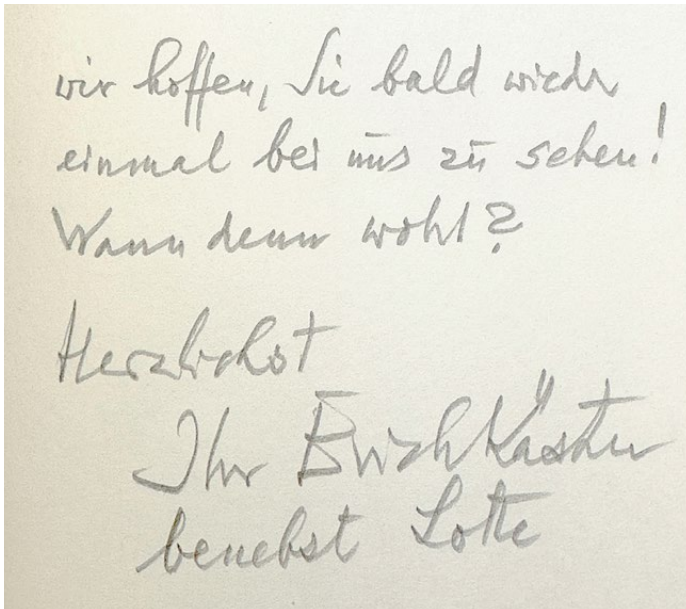 wir hoffen, Sie bald wieder
einmal bei uns zu sehen!
Wann denn wohl?
Herzlichst
Ihr Erich Kästner
benebst Lotte